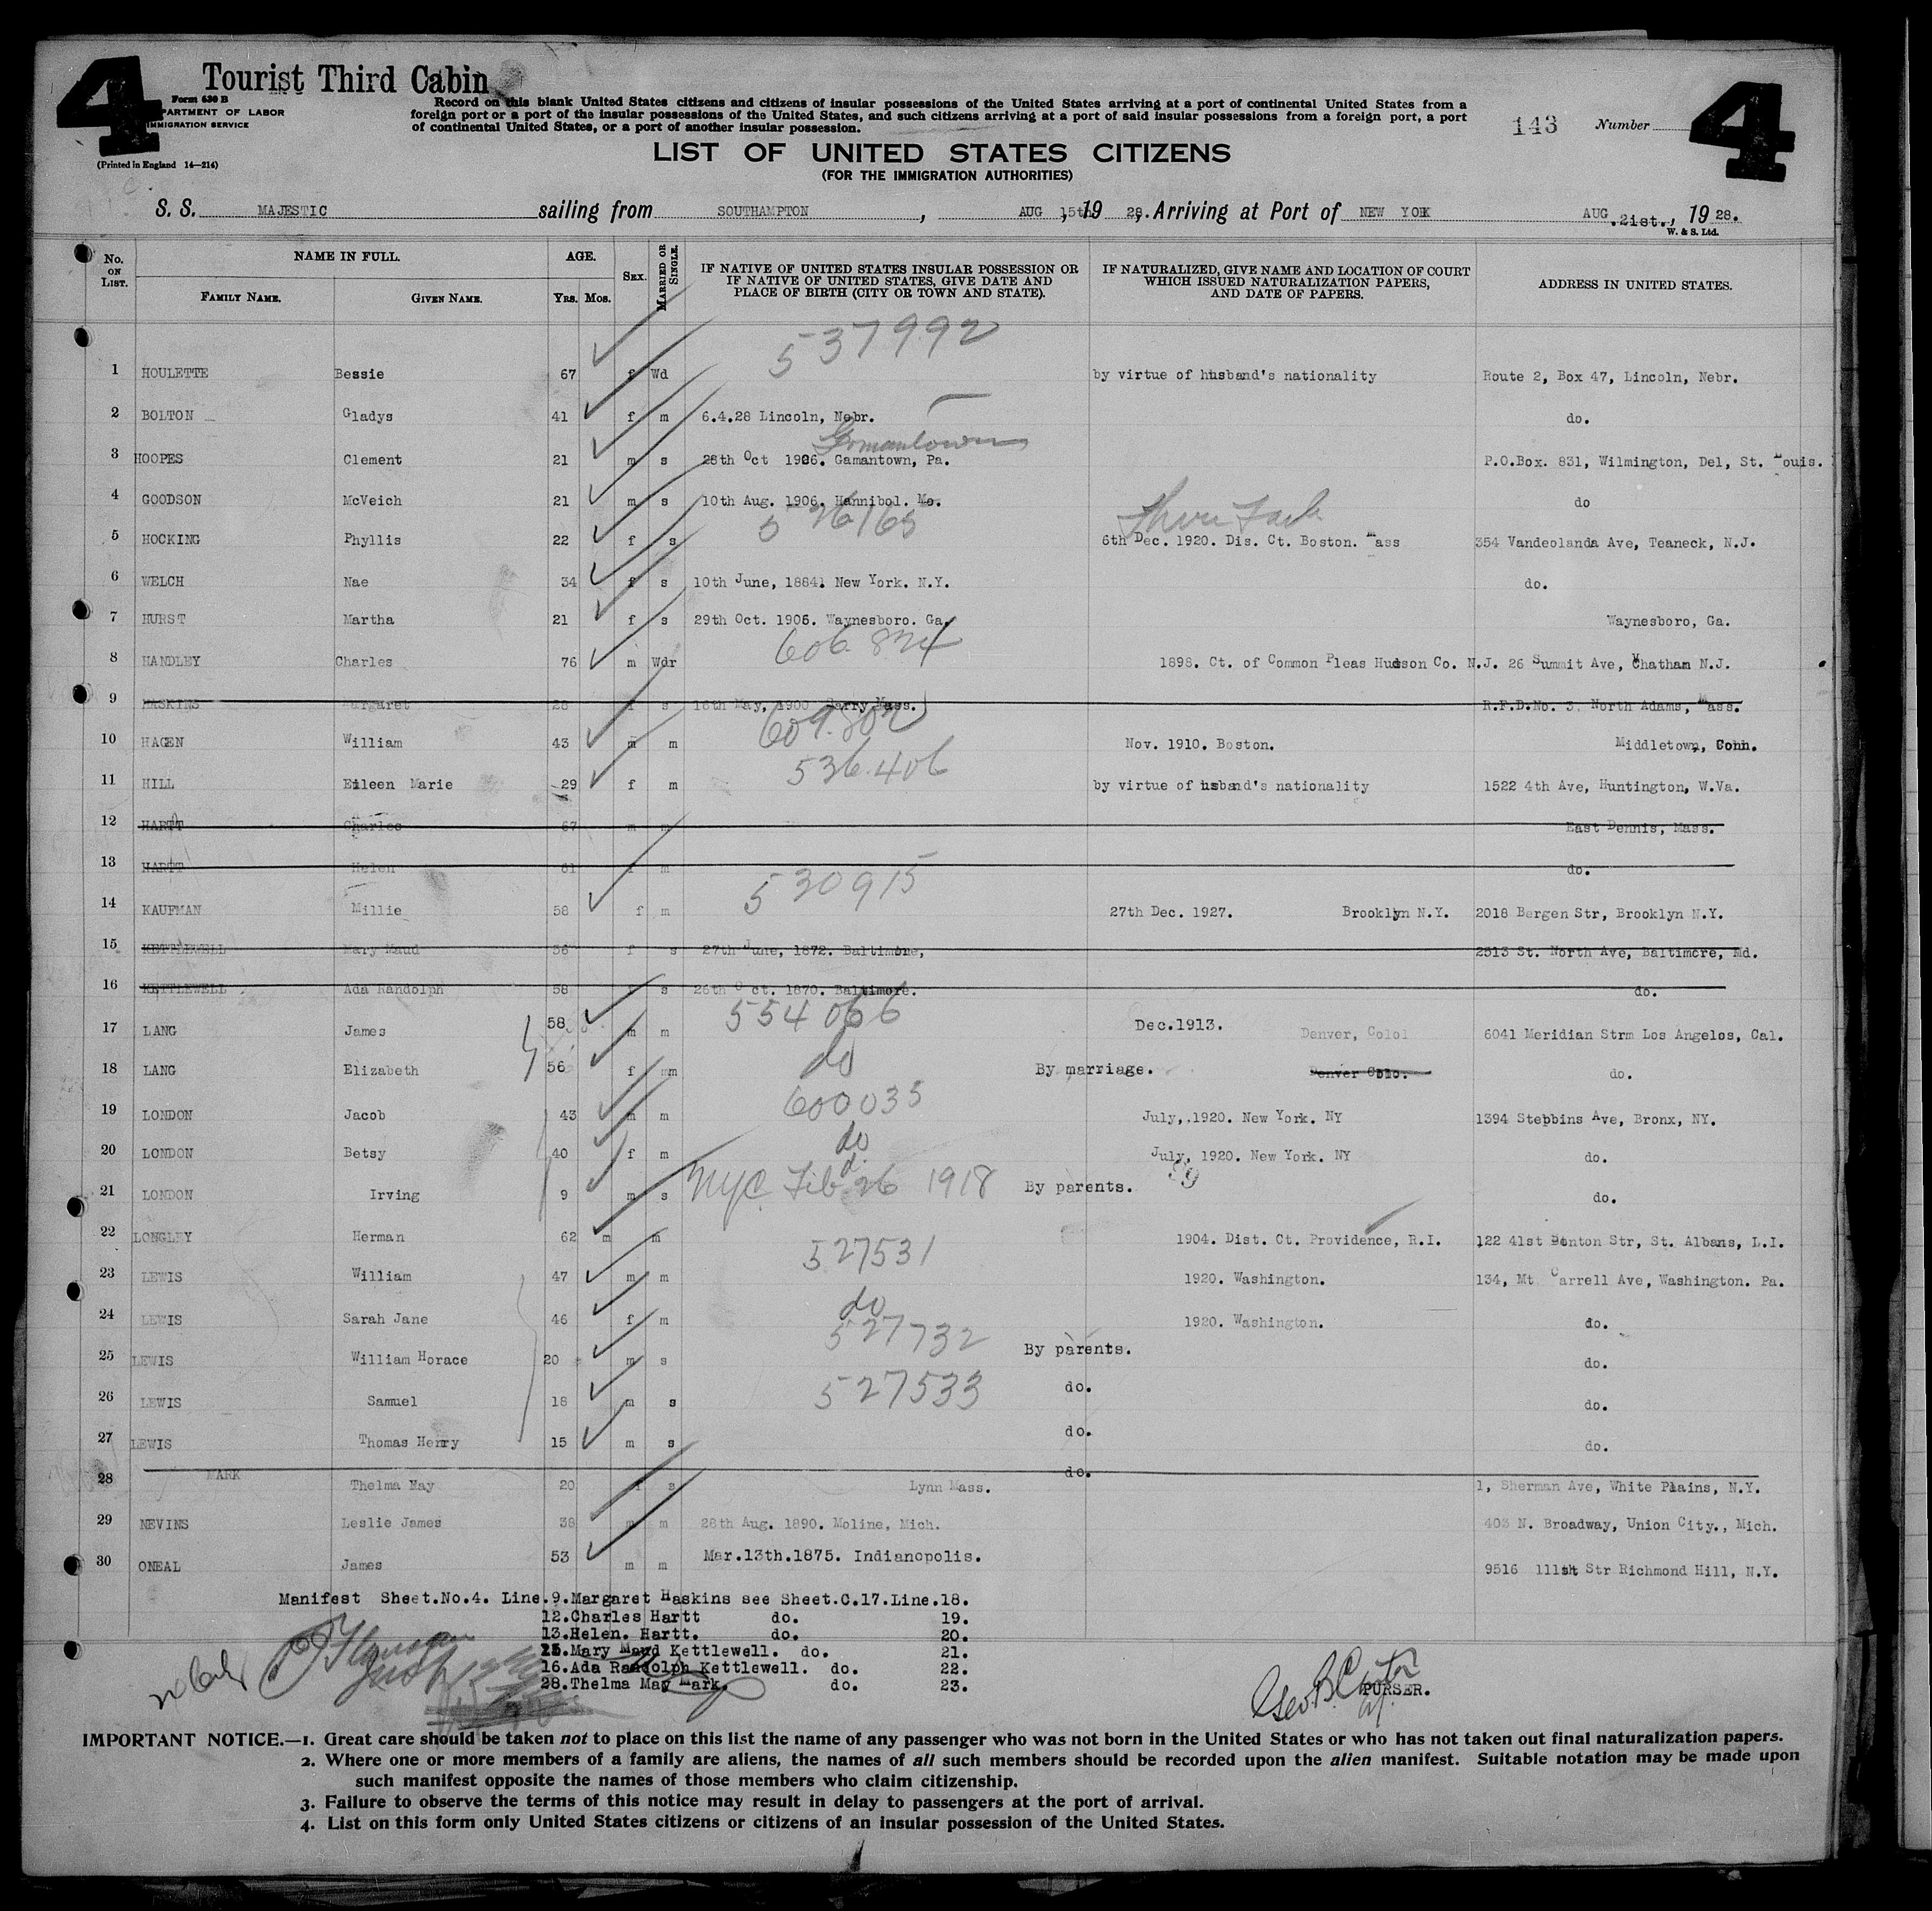 4 Tourist Third Cabin 4
Form 630 B
DEPARTMENT OF LABOR
IMMIGRATION SERVICE
(Printed in England 14—214)
Record on this blank United States citizens and citizens of insular possessions of the United States arriving at a port of continental United States from a
foreign port or a port of the insular possessions of the United States, and such citizens arriving at a port of said insular possessions from a foreign port, a port
of continental United States, or a port of another insular possession.
143 Number
LIST OF UNITED STATES CITIZENS
(FOR THE IMMIGRATION AUTHORITIES)
S. S. MAJESTIC sailing from SOUTHAMPTON, AUG 15th, 19 28. Arriving at Port of NEW YORK AUG 21st., 19 28.
W. & S. Ltd.
No. ON LIST. NAME IN FULL. AGE. SEX. MARRIED OR SINGLE. IF NATIVE OF UNITED STATES INSULAR POSSESSION OR IF NATIVE OF UNITED STATES, GIVE DATE AND PLACE OF BIRTH (CITY OR TOWN AND STATE). IF NATURALIZED, GIVE NAME AND LOCATION OF COURT WHICH ISSUED NATURALIZATION PAPERS, AND DATE OF PAPERS. ADDRESS IN UNITED STATES.
FAMILY NAME. GIVEN NAME. YRS. MOS.
537992
1 HOULETTE Bessie 67 f Wd by virtue of husband's nationality Route 2, Box 47, Lincoln, Nebr.
2 BOLTON Gladys 41 f m 6.4.28 Lincoln, Nebr. do.
Germantown
3 HOOPES Clement 21 m s 28th Oct 1906. Gamantown, Pa. P.O.Box. 831, Wilmington, Del, St. Louis.
4 GOODSON McVeich 21 m s 10th Aug. 1906. Hannibol. Mo. do
526165
5 HOCKING Phyllis 22 f s 6th Dec. 1920. Dis. Ct. Boston. Mass 354 Vandeolanda Ave, Teaneck, N.J.
6 WELCH Nae 34 f s 10th June, 18841 New York. N.Y. do.
7 HURST Martha 21 f s 29th Oct. 1906. Waynesboro. Ga. Waynesboro, Ga.
606.824
8 HANDLEY Charles 76 m Wdr 1898. Ct. of Common Pleas Hudson Co. N.J. 26 Summit Ave, Chatham N.J.
9 HASKINS Margaret 28 f s 16th May, 1900 Mass. R.F.D.No. 3. North Adams, Mass.
609.802
10 HAGEN William 43 m m Nov. 1910. Boston. Middletown, Conn.
536.406
11 HILL Eileen Marie 29 f m by virtue of husband's nationality 1522 4th Ave, Huntington, W.Va.
12 HARTT Charles 67 m m East Dennis, Mass.
13 HARTT Helen 61 f m do.
530915
14 KAUFMAN Millie 58 f m 27th Dec. 1927. Brooklyn N.Y. 2018 Bergen Str, Brooklyn N.Y.
15 KETTLEWELL Mary Maud 56 f s 27th June, 1872. Baltimore, 2513 St. North Ave, Baltimore, Md.
16 KETTLEWELL Ada Randolph 58 s 26th Oct. 1870. Baltimore. do.
554066
17 LANG James 58 m m Dec.1913. Denver, Colol 6041 Meridian Strm Los Angelos, Cal.
do
18 LANG Elizabeth 56 f m By marriage. Denver Colo. do.
600035
19 LONDON Jacob 43 m m July,.1920. New York. NY 1394 Stebbins Ave, Bronx, NY.
do
20 LONDON Betsy 40 f m July, 1920. New York. NY do.
21 LONDON Irving 9 m s NYC Feb 26 1918 By parents. do.
22 LONGLEY Herman 62 m m 1904. Dist. Ct. Providence, R.I. 122 41st Benton Str, St. Albans, L.I.
527531
23 LEWIS William 47 m m 1920. Washington. 134, Mt Carrell Ave, Washington. Pa.
do
24 LEWIS Sarah Jane 46 f m 1920. Washington. do.
527732
25 LEWIS William Horace 20 m s By parents. do.
527533
26 LEWIS Samuel 18 m s do. do.
27 LEWIS Thomas Henry 15 m s do. do.
28 MARK Thelma May 20 f s Lynn Mass. do. 1, Sherman Ave, White Plains, N.Y.
29 NEVINS Leslie James 38 m m 28th Aug. 1890. Moline, Mich. 403 N. Broadway, Union City., Mich.
30 ONEAL James 53 m m Mar.13th.1875. Indianopolis. 9516 111th Str Richmond Hill, N.Y.
Manifest Sheet.No.4. Line.9.Margaret Haskins see Sheet.C.17.Line.18.
12.Charles Hartt do. 19.
13.Helen. Hartt. do. 20.
15.Mary Maud Kettlewell. do. 21.
16.Ada Randolph Kettlewell. do. 22.
28.Thelma May Mark. do. 23.
PURSER.
IMPORTANT NOTICE.—1. Great care should be taken not to place on this list the name of any passenger who was not born in the United States or who has not taken out final naturalization papers.
2. Where one or more members of a family are aliens, the names of all such members should be recorded upon the alien manifest. Suitable notation may be made upon
such manifest opposite the names of those members who claim citizenship.
3. Failure to observe the terms of this notice may result in delay to passengers at the port of arrival.
4. List on this form only United States citizens or citizens of an insular possession of the United States.